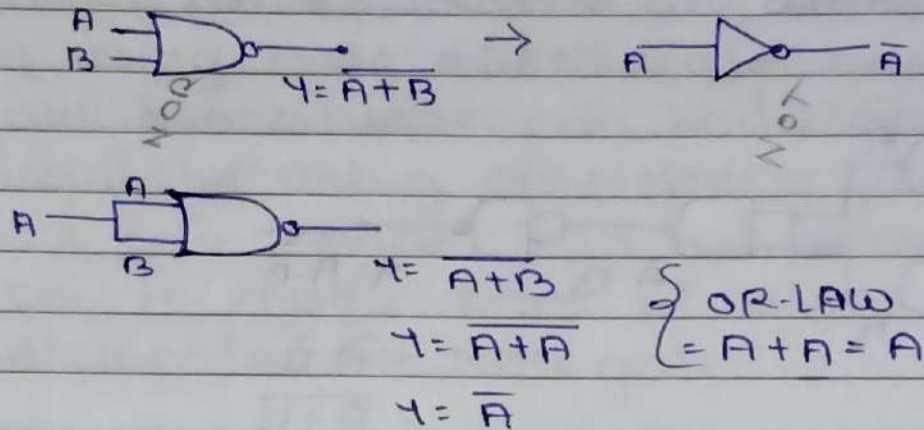 A
B
Y = \overline{A+B}
NOR
→
A
\overline{A}
NOT
A
A
B
Y = \overline{A+B}
Y = \overline{A+A}
Y = \overline{A}
{ OR-LAW
= A + A = A